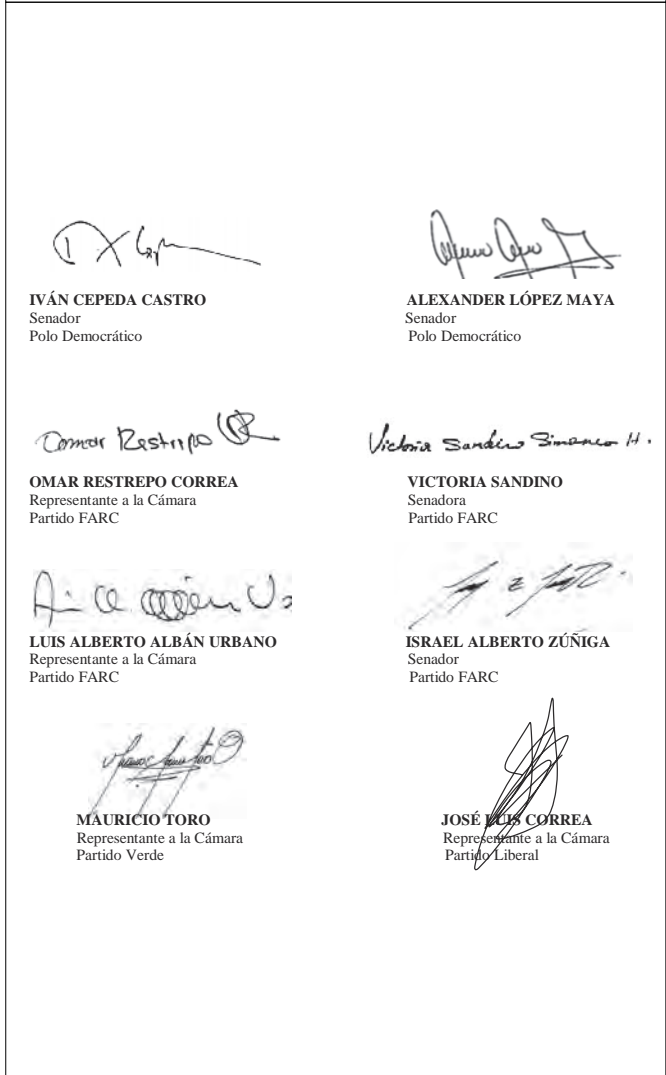 IVÁN CEPEDA CASTRO
Senador
Polo Democrático
ALEXANDER LÓPEZ MAYA
Senador
Polo Democrático
Omar Restrepo
OMAR RESTREPO CORREA
Representante a la Cámara
Partido FARC
Victoria Sandino Simanca H.
VICTORIA SANDINO
Senadora
Partido FARC
LUIS ALBERTO ALBÁN URBANO
Representante a la Cámara
Partido FARC
ISRAEL ALBERTO ZÚÑIGA
Senador
Partido FARC
MAURICIO TORO
Representante a la Cámara
Partido Verde
JOSÉ LUIS CORREA
Representante a la Cámara
Partido Liberal